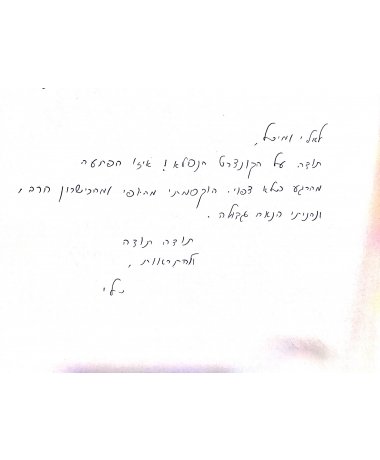 לאלי ומיכל,
תודה על הקונצרט הנפלא! איזו הפתעה
מהרגע בלא צפוי. הוקסמתי מהיופי ומהכישרון הרב,
ונהניתי הנאה גדולה.
תודה תודה
ולהתראות,
נלי